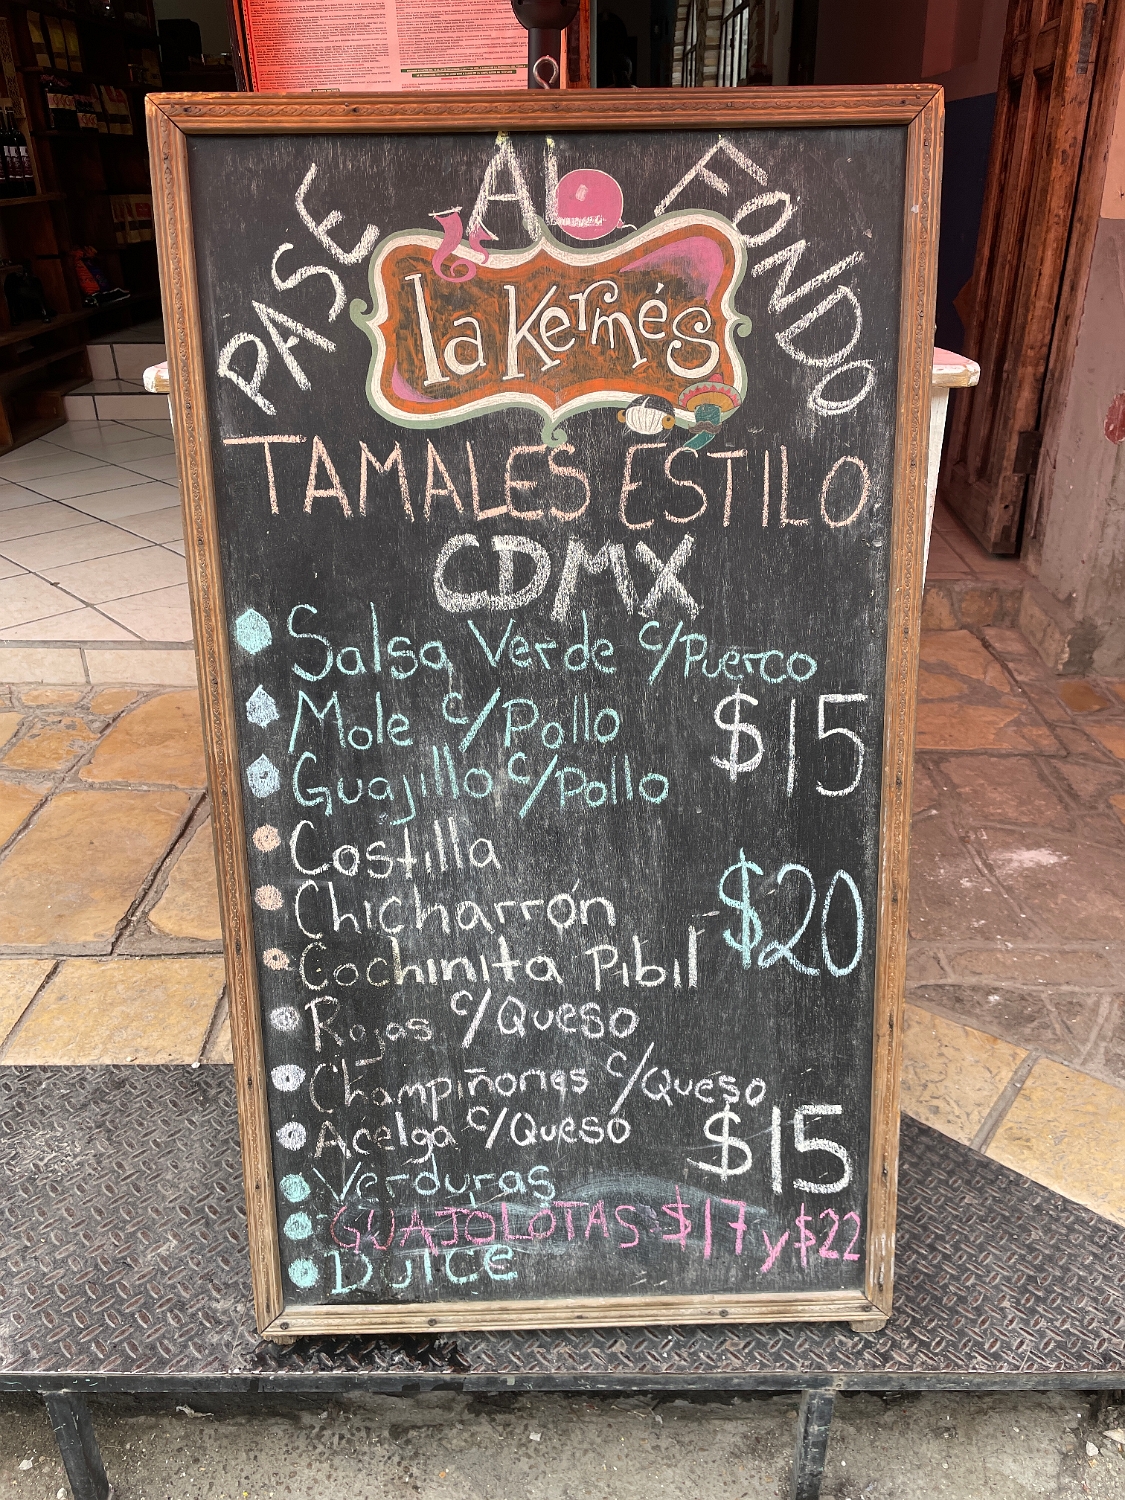 PASE AL FONDO
la Kermés
TAMALES ESTILO
CDMX
Salsa Verde c/Puerco
Mole c/Pollo
$15
Guajillo c/Pollo
Costilla
Chicharrón
$20
Cochinita Pibil
Rajas c/Queso
Champiñones c/Queso
Acelga c/Queso
$15
Verduras
GUAJOLOTAS $17 y $22
Dulce